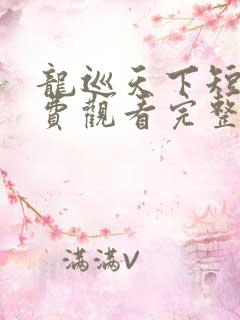 龍巡天下短
費觀看完整
滿滿V